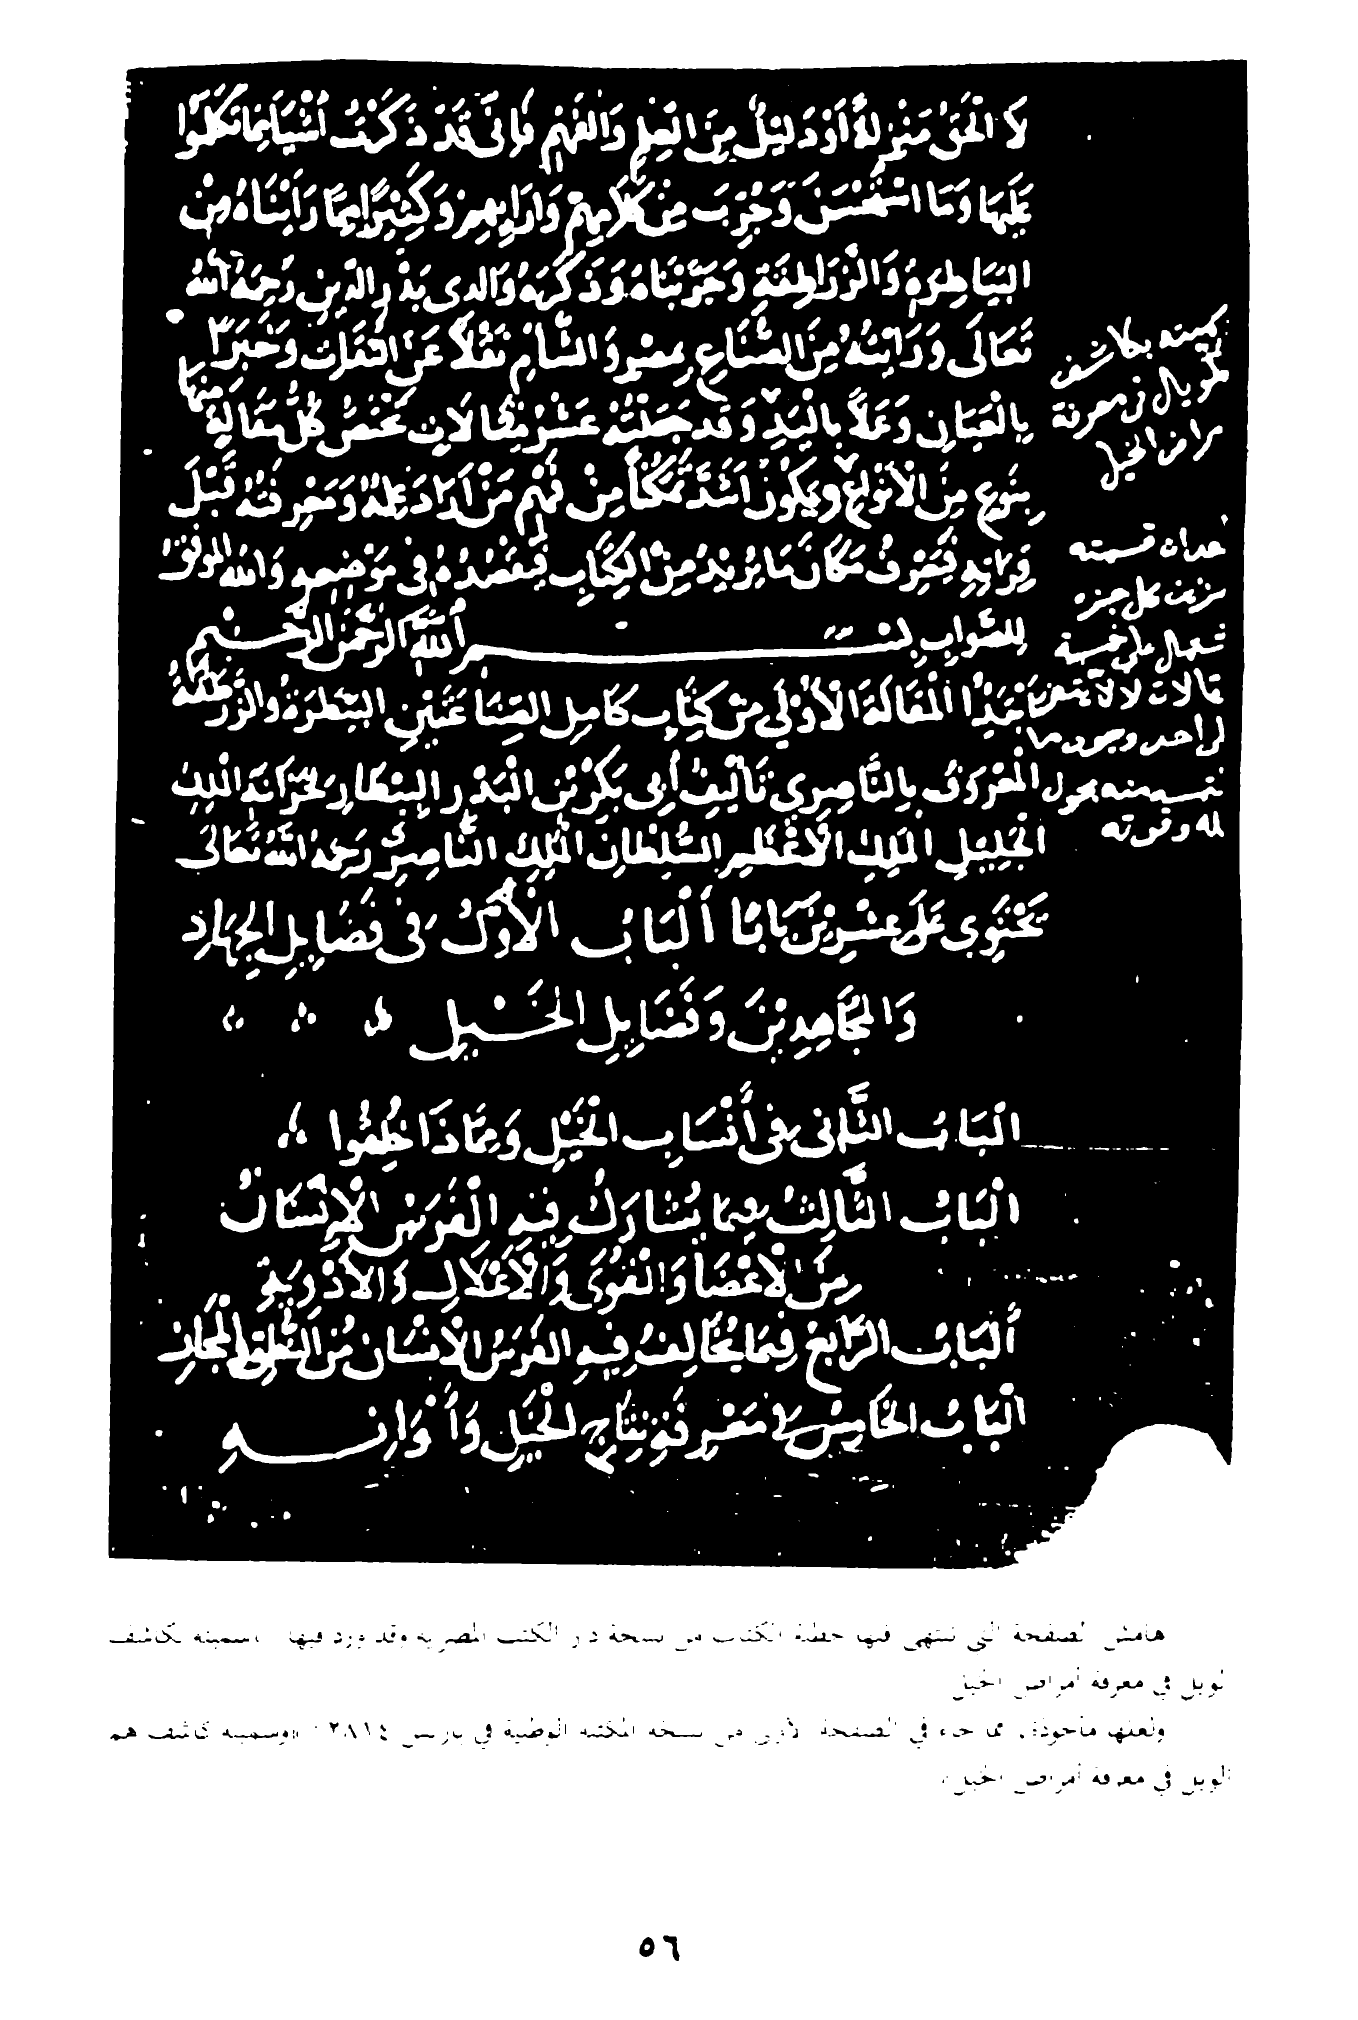 لا الحق منزلة او دليل من العلم والفهم فانى قد ذكرت اشيا مما تكلموا
عليها وما استحسن وجرب من كلامهم وارايهم وكثيرا مما رايناه من
البياطرة والزراطقة وجربناه وذكره والدى بدر الدين رحمه الله
تعالى ورايته من الصناع بمصر والشام نقلا عن الثقات وخبرا
بالعيان وعملا باليد وقد جعلته عشر مقالات تختص كل مقالة منها
بنوع من الانواع ويكون اشد تمكنا من فهم من اراد علمه ومعرفته قبل
قراته فيعرف مكان ما يريد من الكتاب فيقصده فى موضعه والله الموفق
للصواب بسم الله الرحمن الرحيم
المقالة الاولى من كتاب كامل الصناعتين البيطرة والزرطقة
المعروف بالناصري تاليف أبى بكر بن البدر البيطار بخزانة الملك
الجليل الملك الاعظم السلطان الملك الناصر رحمه الله تعالى
تحتوى على عشرين بابا ألباب الاول فى فضايل الجهاد
والمجاهدين وفضايل الخيل
الباب الثانى فى أنساب الخيل ومماذا خلقوا
الباب الثالث فيما يشارك فيه الفرس الإنسان
من الاعضا والقوى والأعلال والادوية
ألباب الرابع فيما يخالف فيه الفرس الانسان من
الباب الخامس فى معرفة نتاج الخيل وأوانه
سميته بكاشف
الويال فى معرفة
امراض الخيل
قسمته
كل جزء
على خمسة
مقالات
هامش الصفحة التي تنتهي فيها خطبة الكتاب من نسخة دار الكتب المصرية وقد ورد فيها «سميته بكاشف
الويل في معرفة أمراض الخيل
ولعلها مأخوذة مما جاء في الصفحة الأولى من نسخة المكتبة الوطنية في باريس ٢٨١٤: «وسميته كاشف هم
الويل في معرفة أمراض الخيل»
٥٦